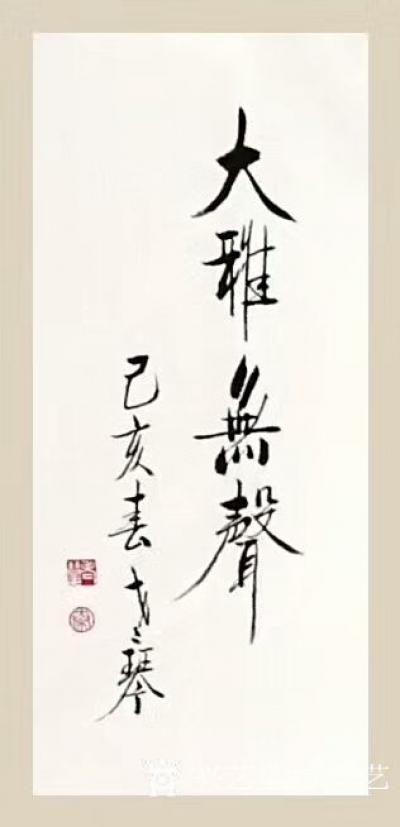 大雅無聲
己亥春 琴